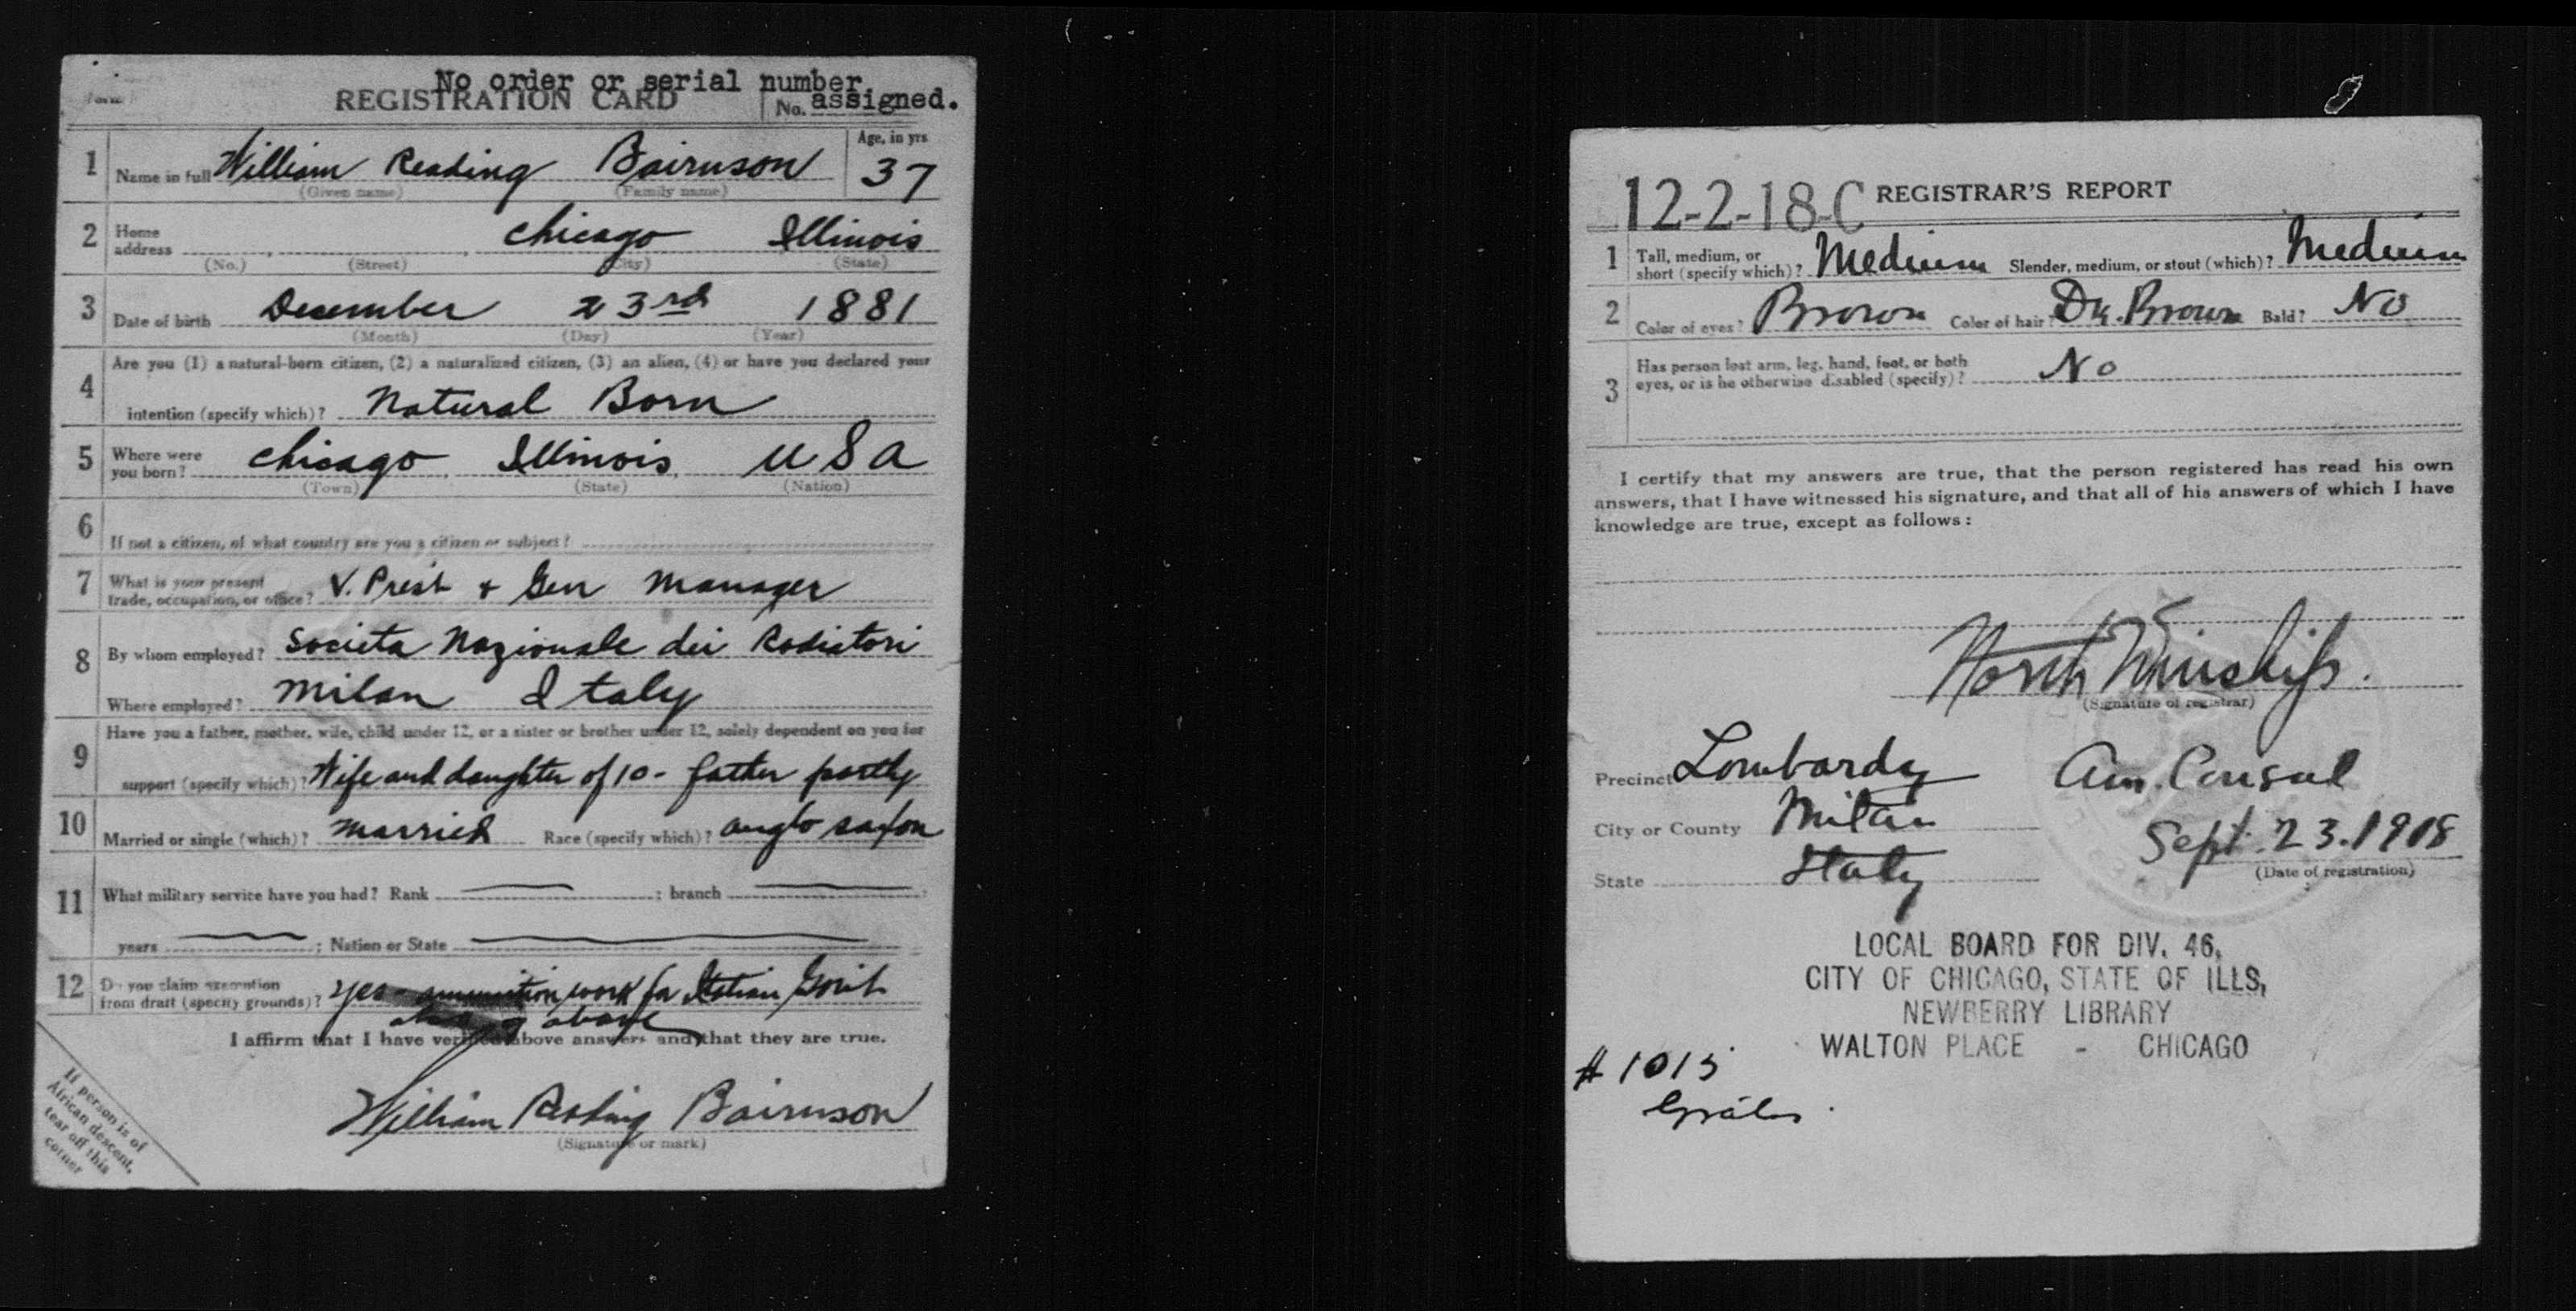 No order or serial number
REGISTRATION CARD No. assigned.
1 Name in full William Reading Bairnson Age, in yrs 37
(Given name) (Family name)
2 Home address Chicago Illinois
(No.) (Street) (City) (State)
3 Date of birth December 23rd 1881
(Month) (Day) (Year)
Are you (1) a natural-born citizen, (2) a naturalized citizen, (3) an alien, (4) or have you declared your
4 intention (specify which)? Natural Born
5 Where were you born? Chicago, Illinois, USA
(Town) (State) (Nation)
6 If not a citizen, of what country are you a citizen or subject?
7 What is your present trade, occupation, or office? V. Prest + Gen Manager
8 By whom employed? Societa Nazionale dei Radiatori
Where employed? Milan Italy
Have you a father, mother, wife, child under 12, or a sister or brother under 12, solely dependent on you for
9 support (specify which)? Wife and daughter of 10 - father partly
10 Married or single (which)? married Race (specify which)? anglo saxon
11 What military service have you had? Rank ; branch ;
years ; Nation or State
12 Do you claim exemption from draft (specify grounds)? Yes - ammunition work for Italian Govt
above
I affirm that I have verified above answers and that they are true.
William Reading Bairnson
(Signature or mark)
If person is of
African descent,
tear off this
corner
12-2-18-C REGISTRAR'S REPORT
1 Tall, medium, or short (specify which)? Medium Slender, medium, or stout (which)? Medium
2 Color of eyes? Brown Color of hair? Dk. Brown Bald? No
3 Has person lost arm, leg, hand, foot, or both eyes, or is he otherwise disabled (specify)? No
I certify that my answers are true, that the person registered has read his own
answers, that I have witnessed his signature, and that all of his answers of which I have
knowledge are true, except as follows:
North Winship.
(Signature of registrar)
Precinct Lombardy Am. Consul
City or County Milan
Sept. 23. 1918
State Italy (Date of registration)
LOCAL BOARD FOR DIV. 46,
CITY OF CHICAGO, STATE OF ILLS,
NEWBERRY LIBRARY
WALTON PLACE - CHICAGO
# 1015